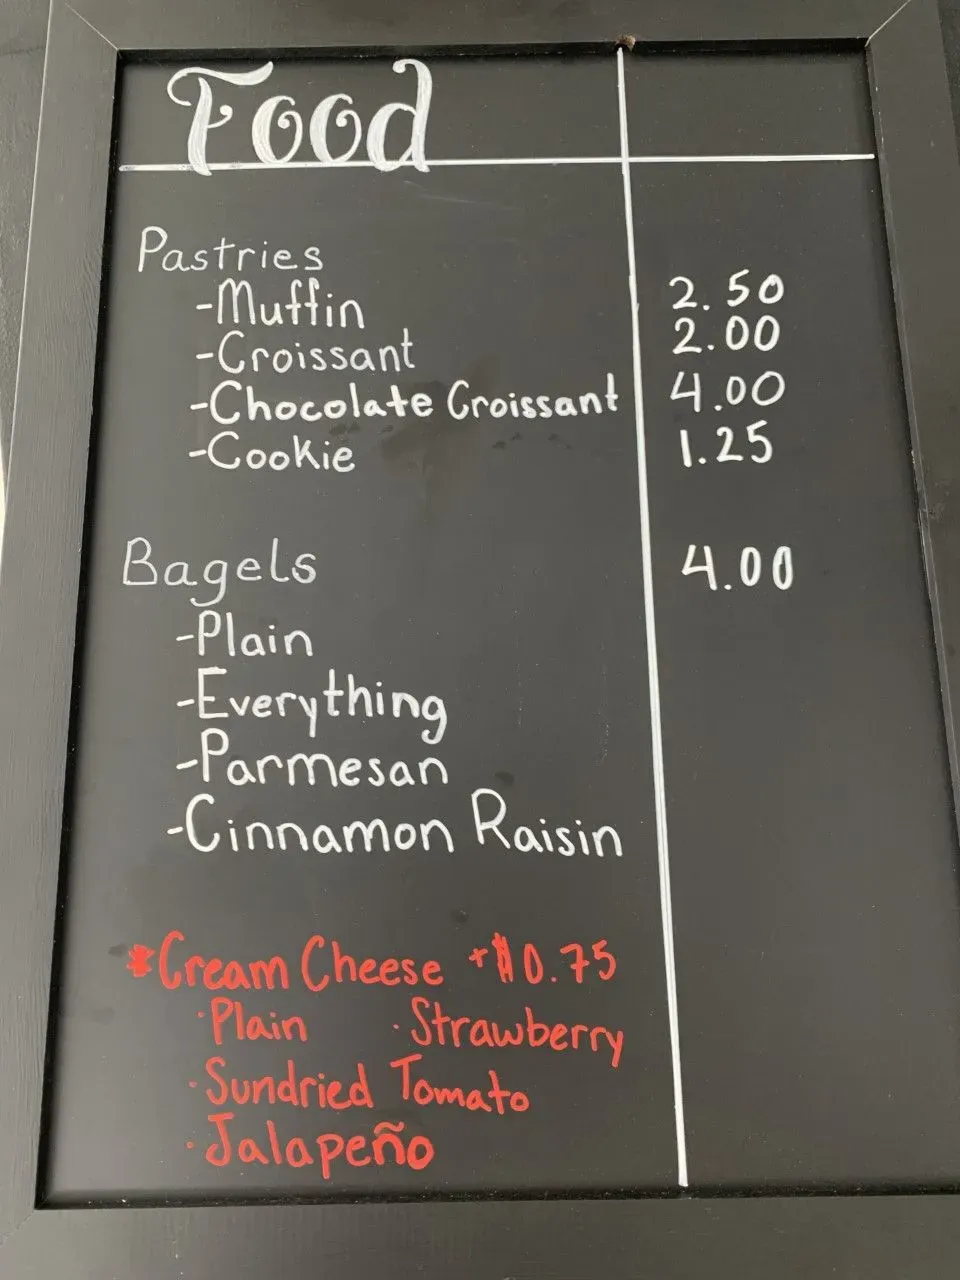 Food
Pastries
-Muffin 2.50
-Croissant 2.00
-Chocolate Croissant 4.00
-Cookie 1.25
Bagels 4.00
-Plain
-Everything
-Parmesan
-Cinnamon Raisin
*Cream Cheese +$0.75
·Plain ·Strawberry
·Sundried Tomato
·Jalapeño